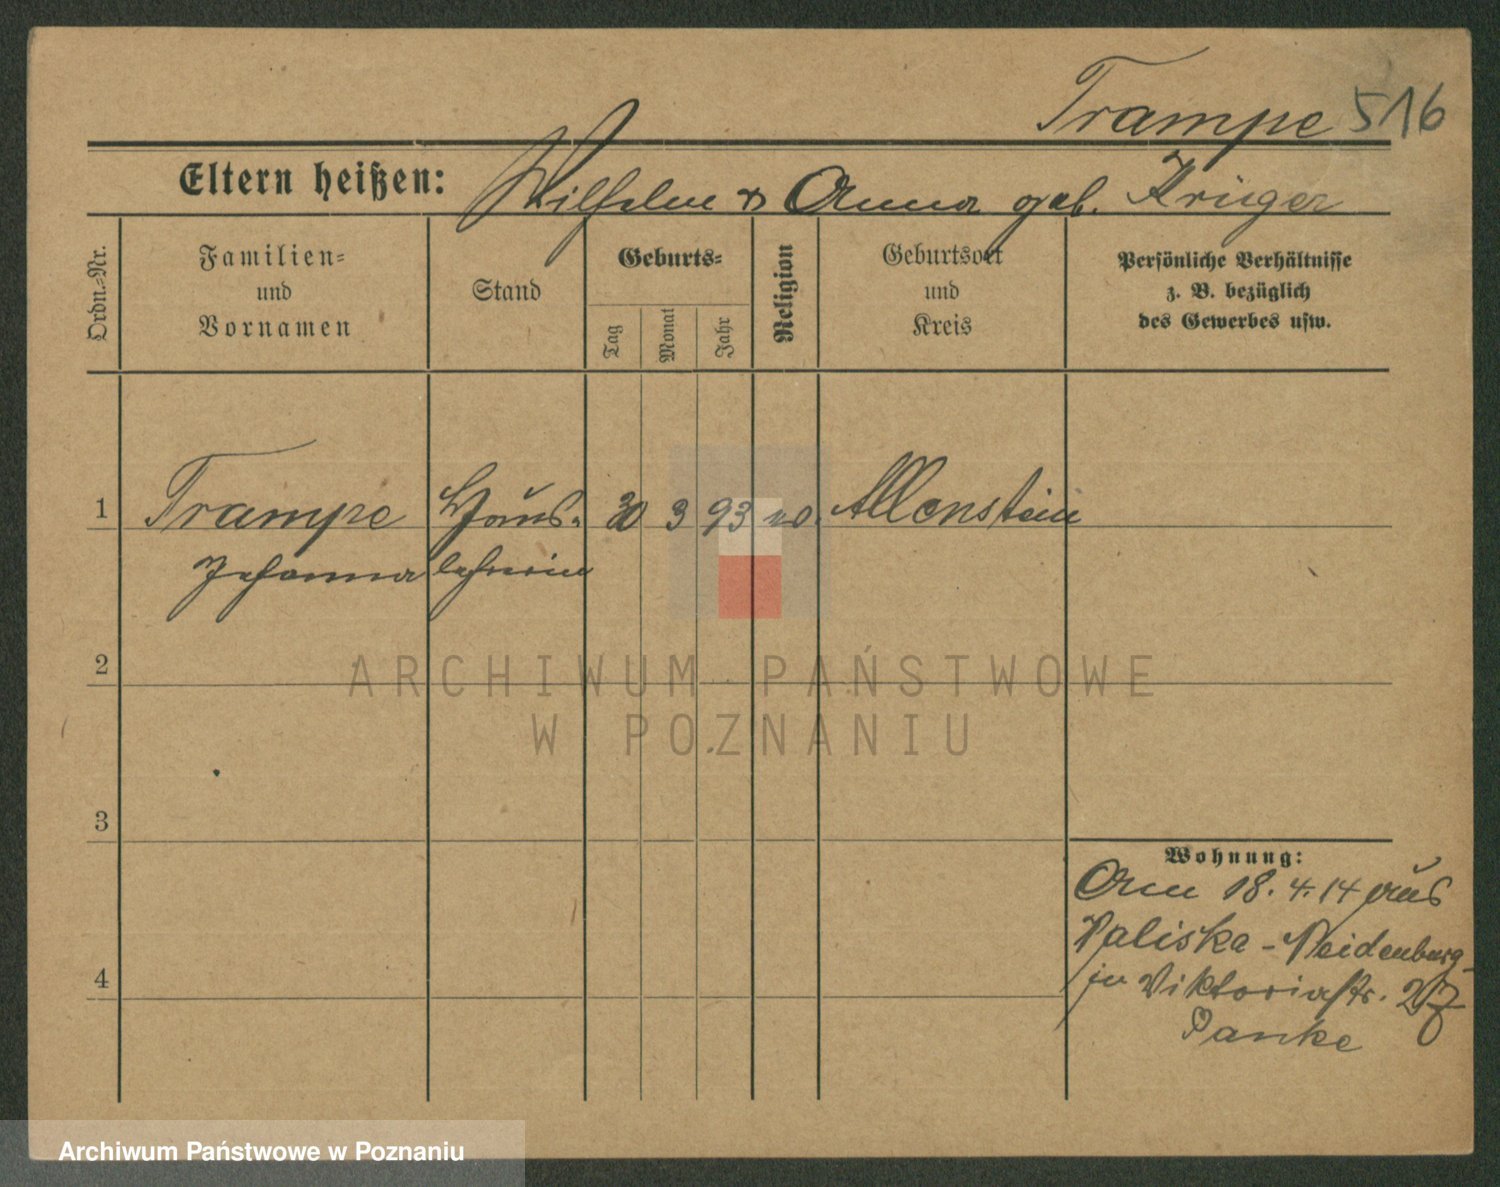 Trampe 516
Eltern heißen: Wilhelm & Anna geb. Krüger
Ordn.-Nr.
Familien-
und
Vornamen
Stand
Geburts-
Tag
Monat
Jahr
Religion
Geburtsort
und
Kreis
Persönliche Verhältnisse
z. B. bezüglich
des Gewerbes usw.
1 Trampe Haus- 30 3 93 ev. Allenstein
Johanna lehrerin
2
3
4
Wohnung:
Am 18.4.14 aus
Paliska - Neidenburg
in Viktoriastr. 27
Panke
ARCHIWUM PAŃSTWOWE
W POZNANIU
Archiwum Państwowe w Poznaniu